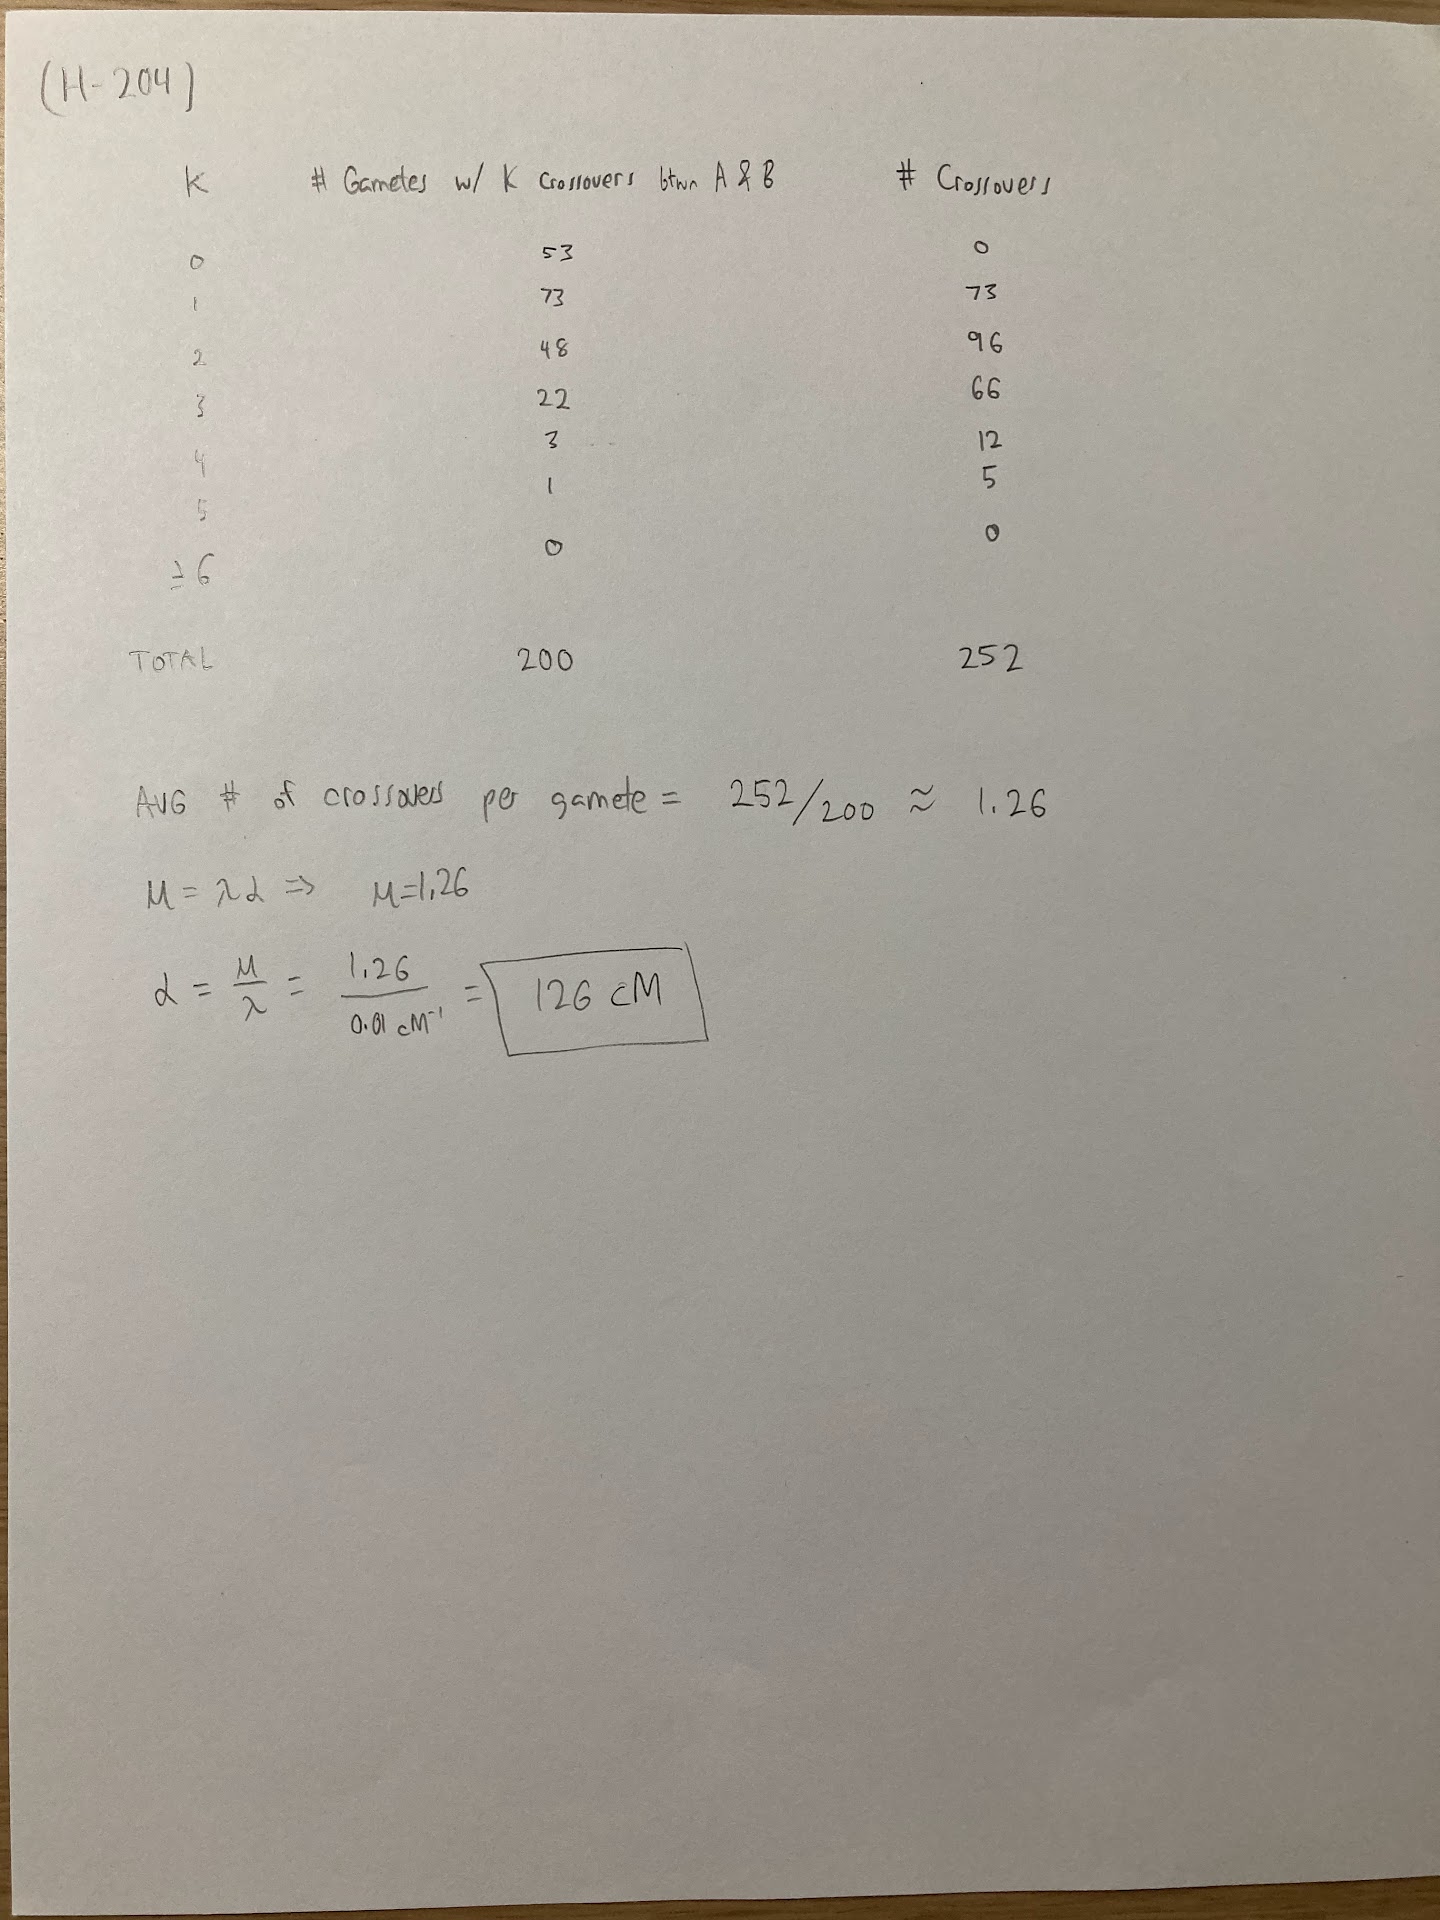 (H-204)
K # Gametes w/ K crossovers btwn A & B # Crossovers
0 53 0
1 73 73
2 48 96
3 22 66
4 3 12
5 1 5
≥6 0 0
TOTAL 200 252
AVG # of crossovers per gamete = 252/200 ≈ 1.26
μ = λd => μ=1.26
d = μ/λ = 1.26/0.01 cM⁻¹ = 126 cM